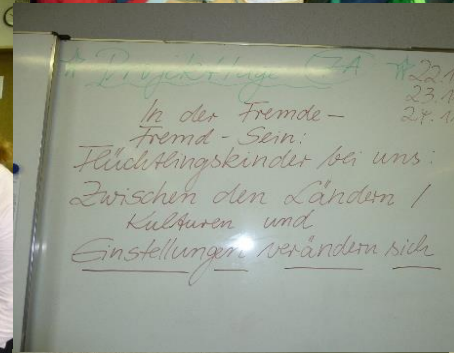 ☆ Projekttage 7A ☆ 22.1
23.1
In der Fremde - 24.1
Fremd-Sein:
Flüchtlingskinder bei uns:
Zwischen den Ländern /
Kulturen und
Einstellungen verändern sich